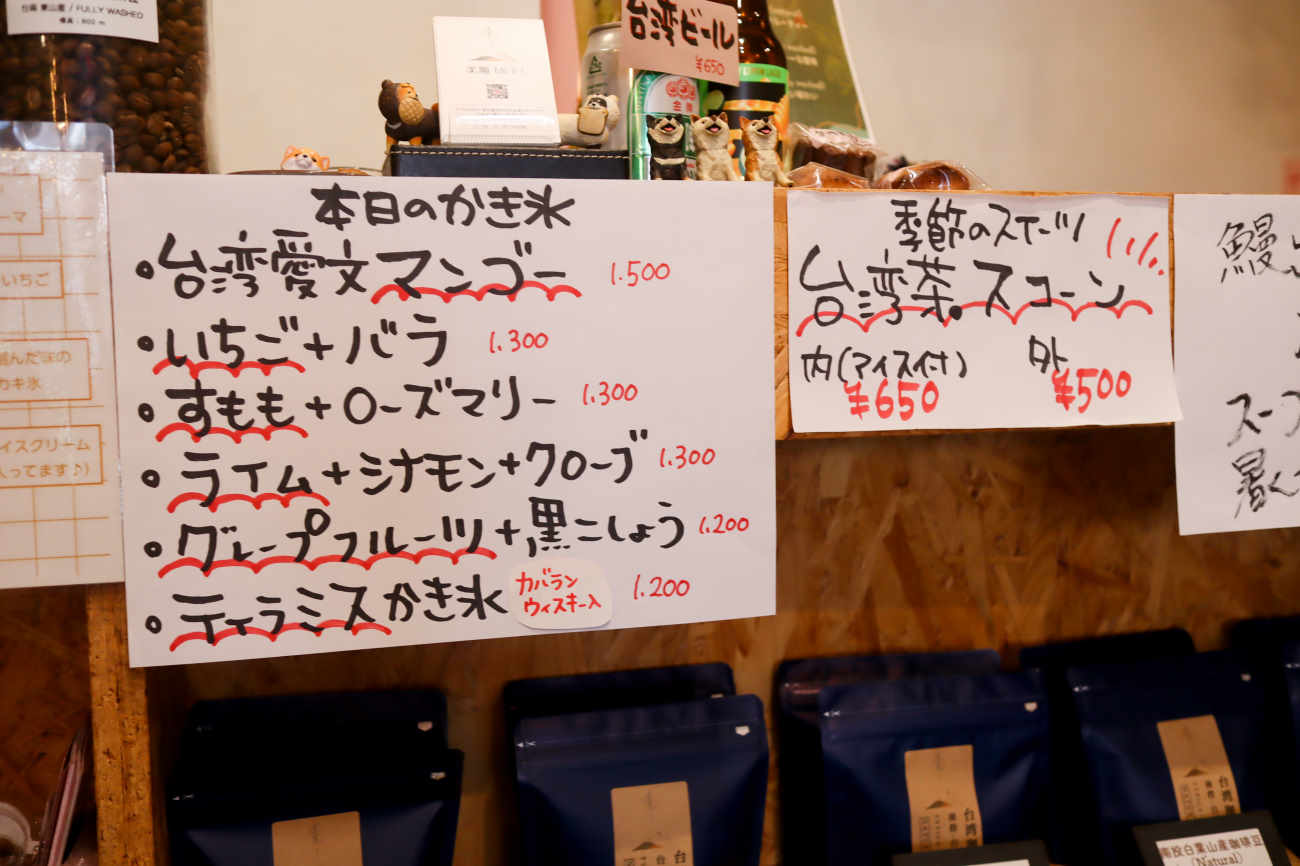 台湾 東山産 / FULLY WASHED
標高:800 m
台湾ビール
¥650
本日のかき氷
・台湾愛文マンゴー 1.500
・いちご+バラ 1.300
・すもも+ローズマリー 1.300
・ライム+シナモン+クローブ 1.300
・グレープフルーツ+黒こしょう 1.200
・ティラミスかき氷 カバラン ウィスキー入 1.200
季節のスイーツ
台湾茶.スコーン
内(アイス付) 外
¥650 ¥500
ーマ
いちご
んだ味の
カキ氷
イスクリーム
入ってます♪)
鰻
スープ
暑く
台湾
台湾
南投白葉山産珈琲豆
(Natural)